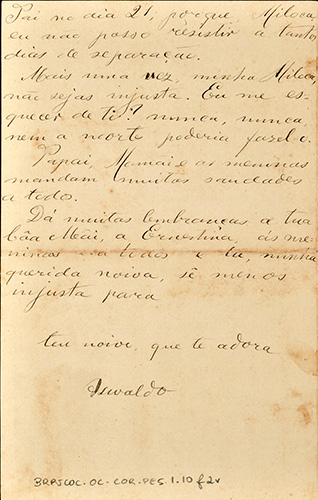 Pai no dia 21, porque, Miloca,
eu não posso resistir a tantos
dias de separação.
Mais uma vez, minha Miloca,
não sejas injusta. Eu me es-
quecer de ti? nunca, nunca,
nem a morte poderia fazel-o.
Papai, Mamai e as meninas
mandam muitas saudades
a todo.
Dá muitas lembranças a tua
bôa Mãi, a Ernestina, ás me-
ninas e a todos e tu, minha
querida noiva, sê menos
injusta para
teu noivo, que te adora
Oswaldo
BRRJCOC.OC.COR.PES.1.10 f2v